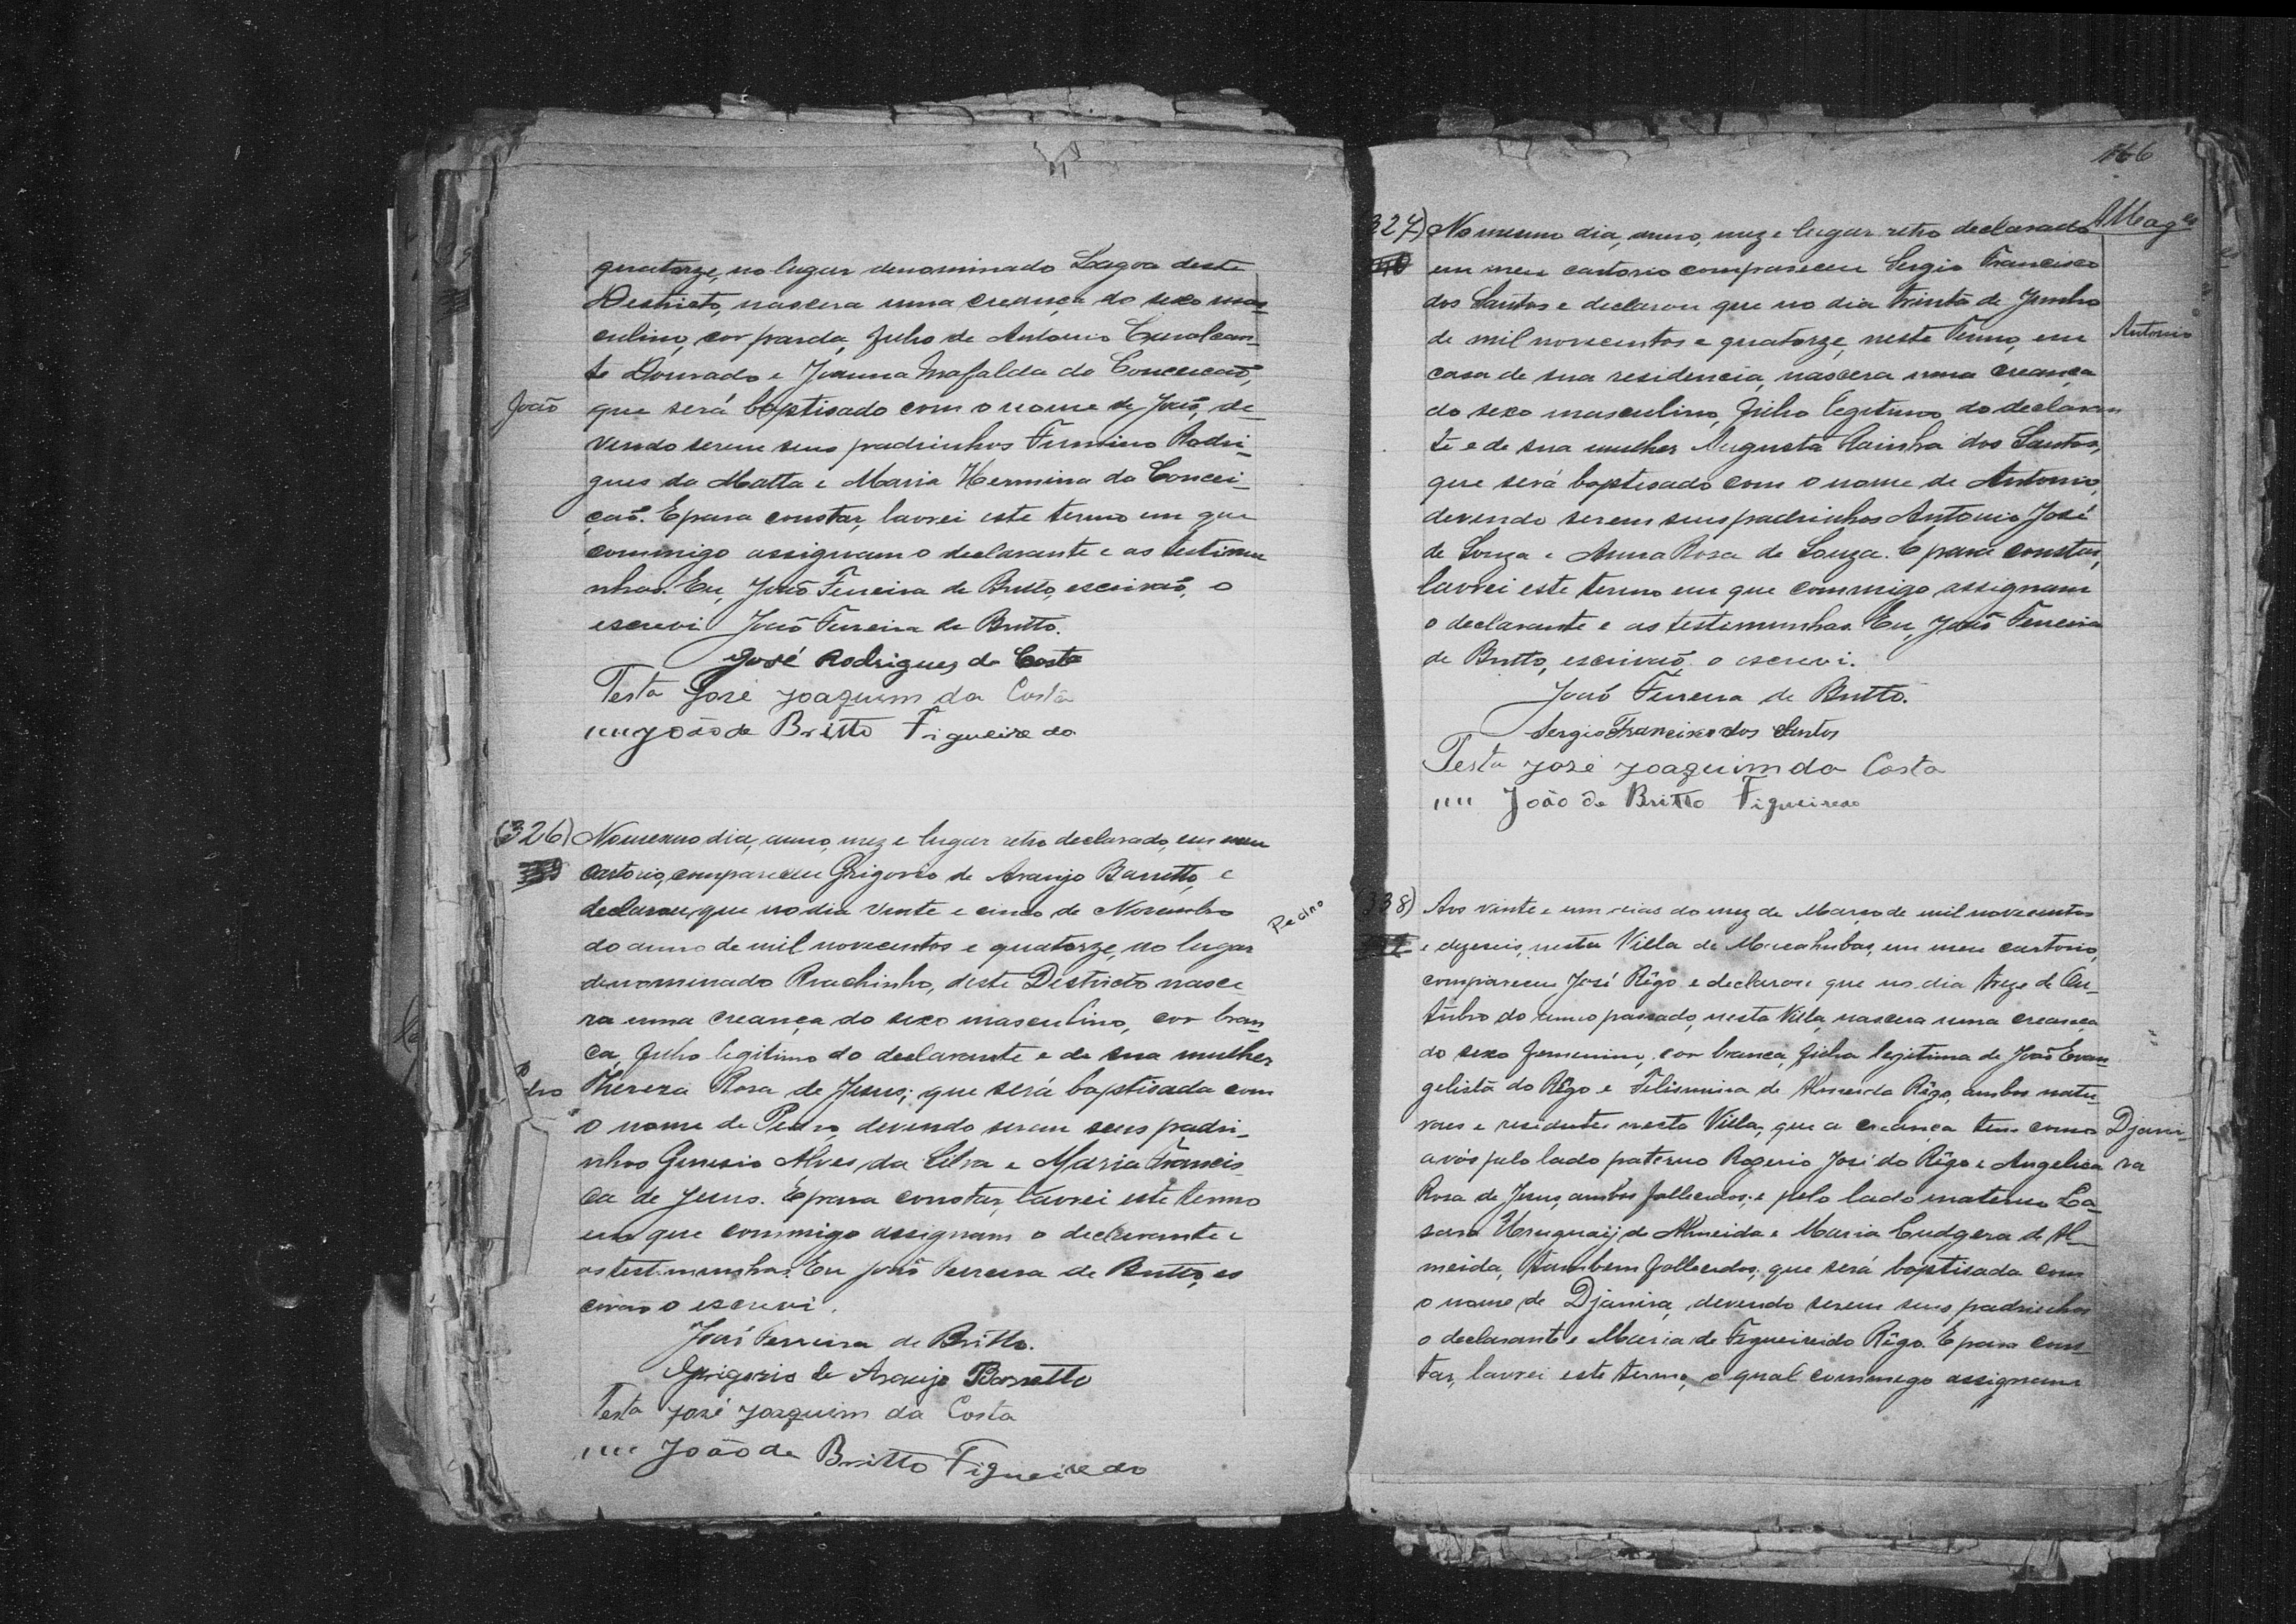 quatorze, no lugar denominado Lagoa deste
Destricto, nascera uma creança do sexo mas-
culino, cor parda, filho de Antonio Cavalcan-
te Dourado e Joanna Mafalda da Conceicaõ,
João
que será baptisado com o nome de João, de-
vendo serem seus padrinhos Firmino Rodri-
gues da Matta e Maria Hermina da Concei-
çaõ. E para constar, lavrei este termo em que
commigo assignam o declarante e as testimu
nhas. Eu, João Ferreira de Britto, escrivaõ, o
escrevi João Ferreira de Britto.
José Rodrigues da Costa
Testa José Joaquim da Costa
"" João de Britto Figueiredo
(326) No mesmo dia, anno, mez e lugar retro declarado, em meu
cartorio, compareceu Grigorio de Araujo Barretto, e
declarou que no dia vinte e cinco de Novembro
do anno de mil novecentos e quatorze, no lugar
denominado Riachinho, deste Districto nasce
ra uma creança do sexo masculino, cor bran
ca, filho legitimo do declarante e de sua mulher
Thereza Rosa de Jesus; que será baptisada com
o nome de Pedro, devendo serem seus padri-
nhos Genesio Alves da Silva e Maria Francis
ca de Jesus. E para constar, lavrei este termo
em que commigo assignam o declarante e
as testimunhas. Eu João Ferreira de Britto, es
crivão o escrevi.
João Ferreira de Britto.
Grigorio de Araujo Barretto
Testa José Joaquim da Costa
"" João de Britto Figueiredo
166
327) No mesmo dia, anno, mez e lugar retro declarado
em meu cartorio compareceu Sergio Francisco
dos Santos e declarou que no dia trinta de Junho
de mil novecentos e quatorze, neste Termo, em
Antonio
casa de sua residencia, nascera uma creança
do sexo masculino, filho legitimo do declaran
te e de sua mulher Augusta Rainha dos Santos,
que será baptisado com o nome de Antonio,
devendo serem seus padrinhos Antonio José
de Souza e Anna Rosa de Souza. E para constar,
lavrei este termo em que commigo assignam
o declarante e as testimunhas. Eu, João Ferreira
de Britto, escrivaõ, o escrevi.
João Ferreira de Britto.
Sergio Francisco dos Santos
Testa José Joaquim da Costa
"" João de Britto Figueiredo
Aos vinte e um dias do mez de Março de mil novecentos
e dezeseis, nesta Villa de Macahubas, em meu cartorio,
compareceu José Rêgo e declarou que no dia treze de Ou-
tubro do anno passado, nesta Villa, nascera uma creança
do sexo femenino, cor branca, filha legitima de João Evan
gelista do Rêgo e Felismina de Almeida Rêgo, ambos natu-
raes e residentes nesta Villa, que a creança tem como
Djani-
ra
avós pelo lado paterno Rogerio José do Rêgo e Angelica
Rosa de Jesus, ambos fallecidos; e pelo lado materno La-
saro Uruguaij de Almeida e Maria Ludgera de Al-
meida, tambem fallecidos, que será baptisada com
o nome de Djanira, devendo serem seus padrinhos
o declarante e Maria de Figueiredo Rêgo. E para cons-
tar, lavrei este termo, o qual commigo assignam